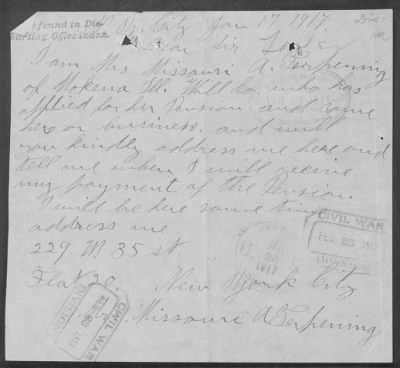 found in Dis-
bursing Office index.
City Jan 17, 1917.
Dear Sir
I am Mrs Missouri A. Terpening
of Mokena Ill. Will Co. who has
applied for her Pension and came
here on business, and will
you kindly address me here and
tell me when I will receive
my payment of the Pension
I will be here some time
address me
229 W. 35 st.
Flat 20. New York City
Missouri A Terpening
CIVIL WAR
FEB 23 1917
DIVISION
1917
CIVIL WAR
FEB 23 1917
DIVISION